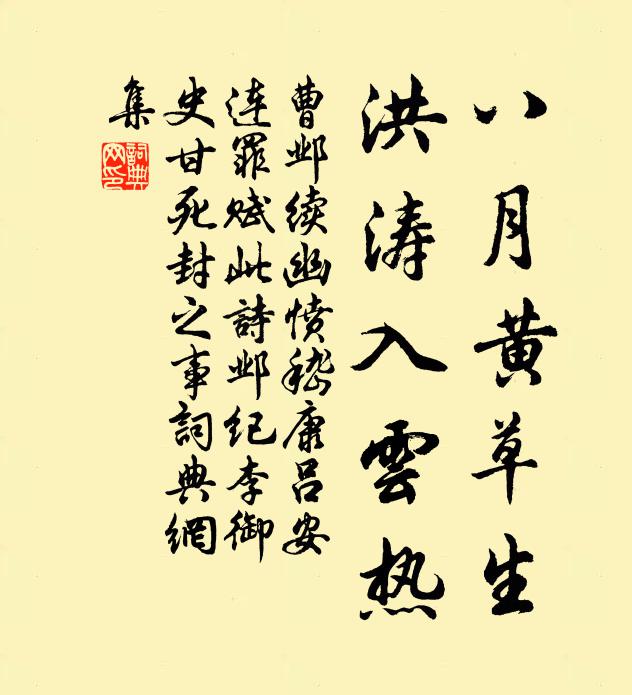 八月黄草生
洪涛入雲热
曹邺续幽愤嵇康吕安
连罪赋此詩邺纪李御
史甘死封之事詞典網
集
詞典
网印